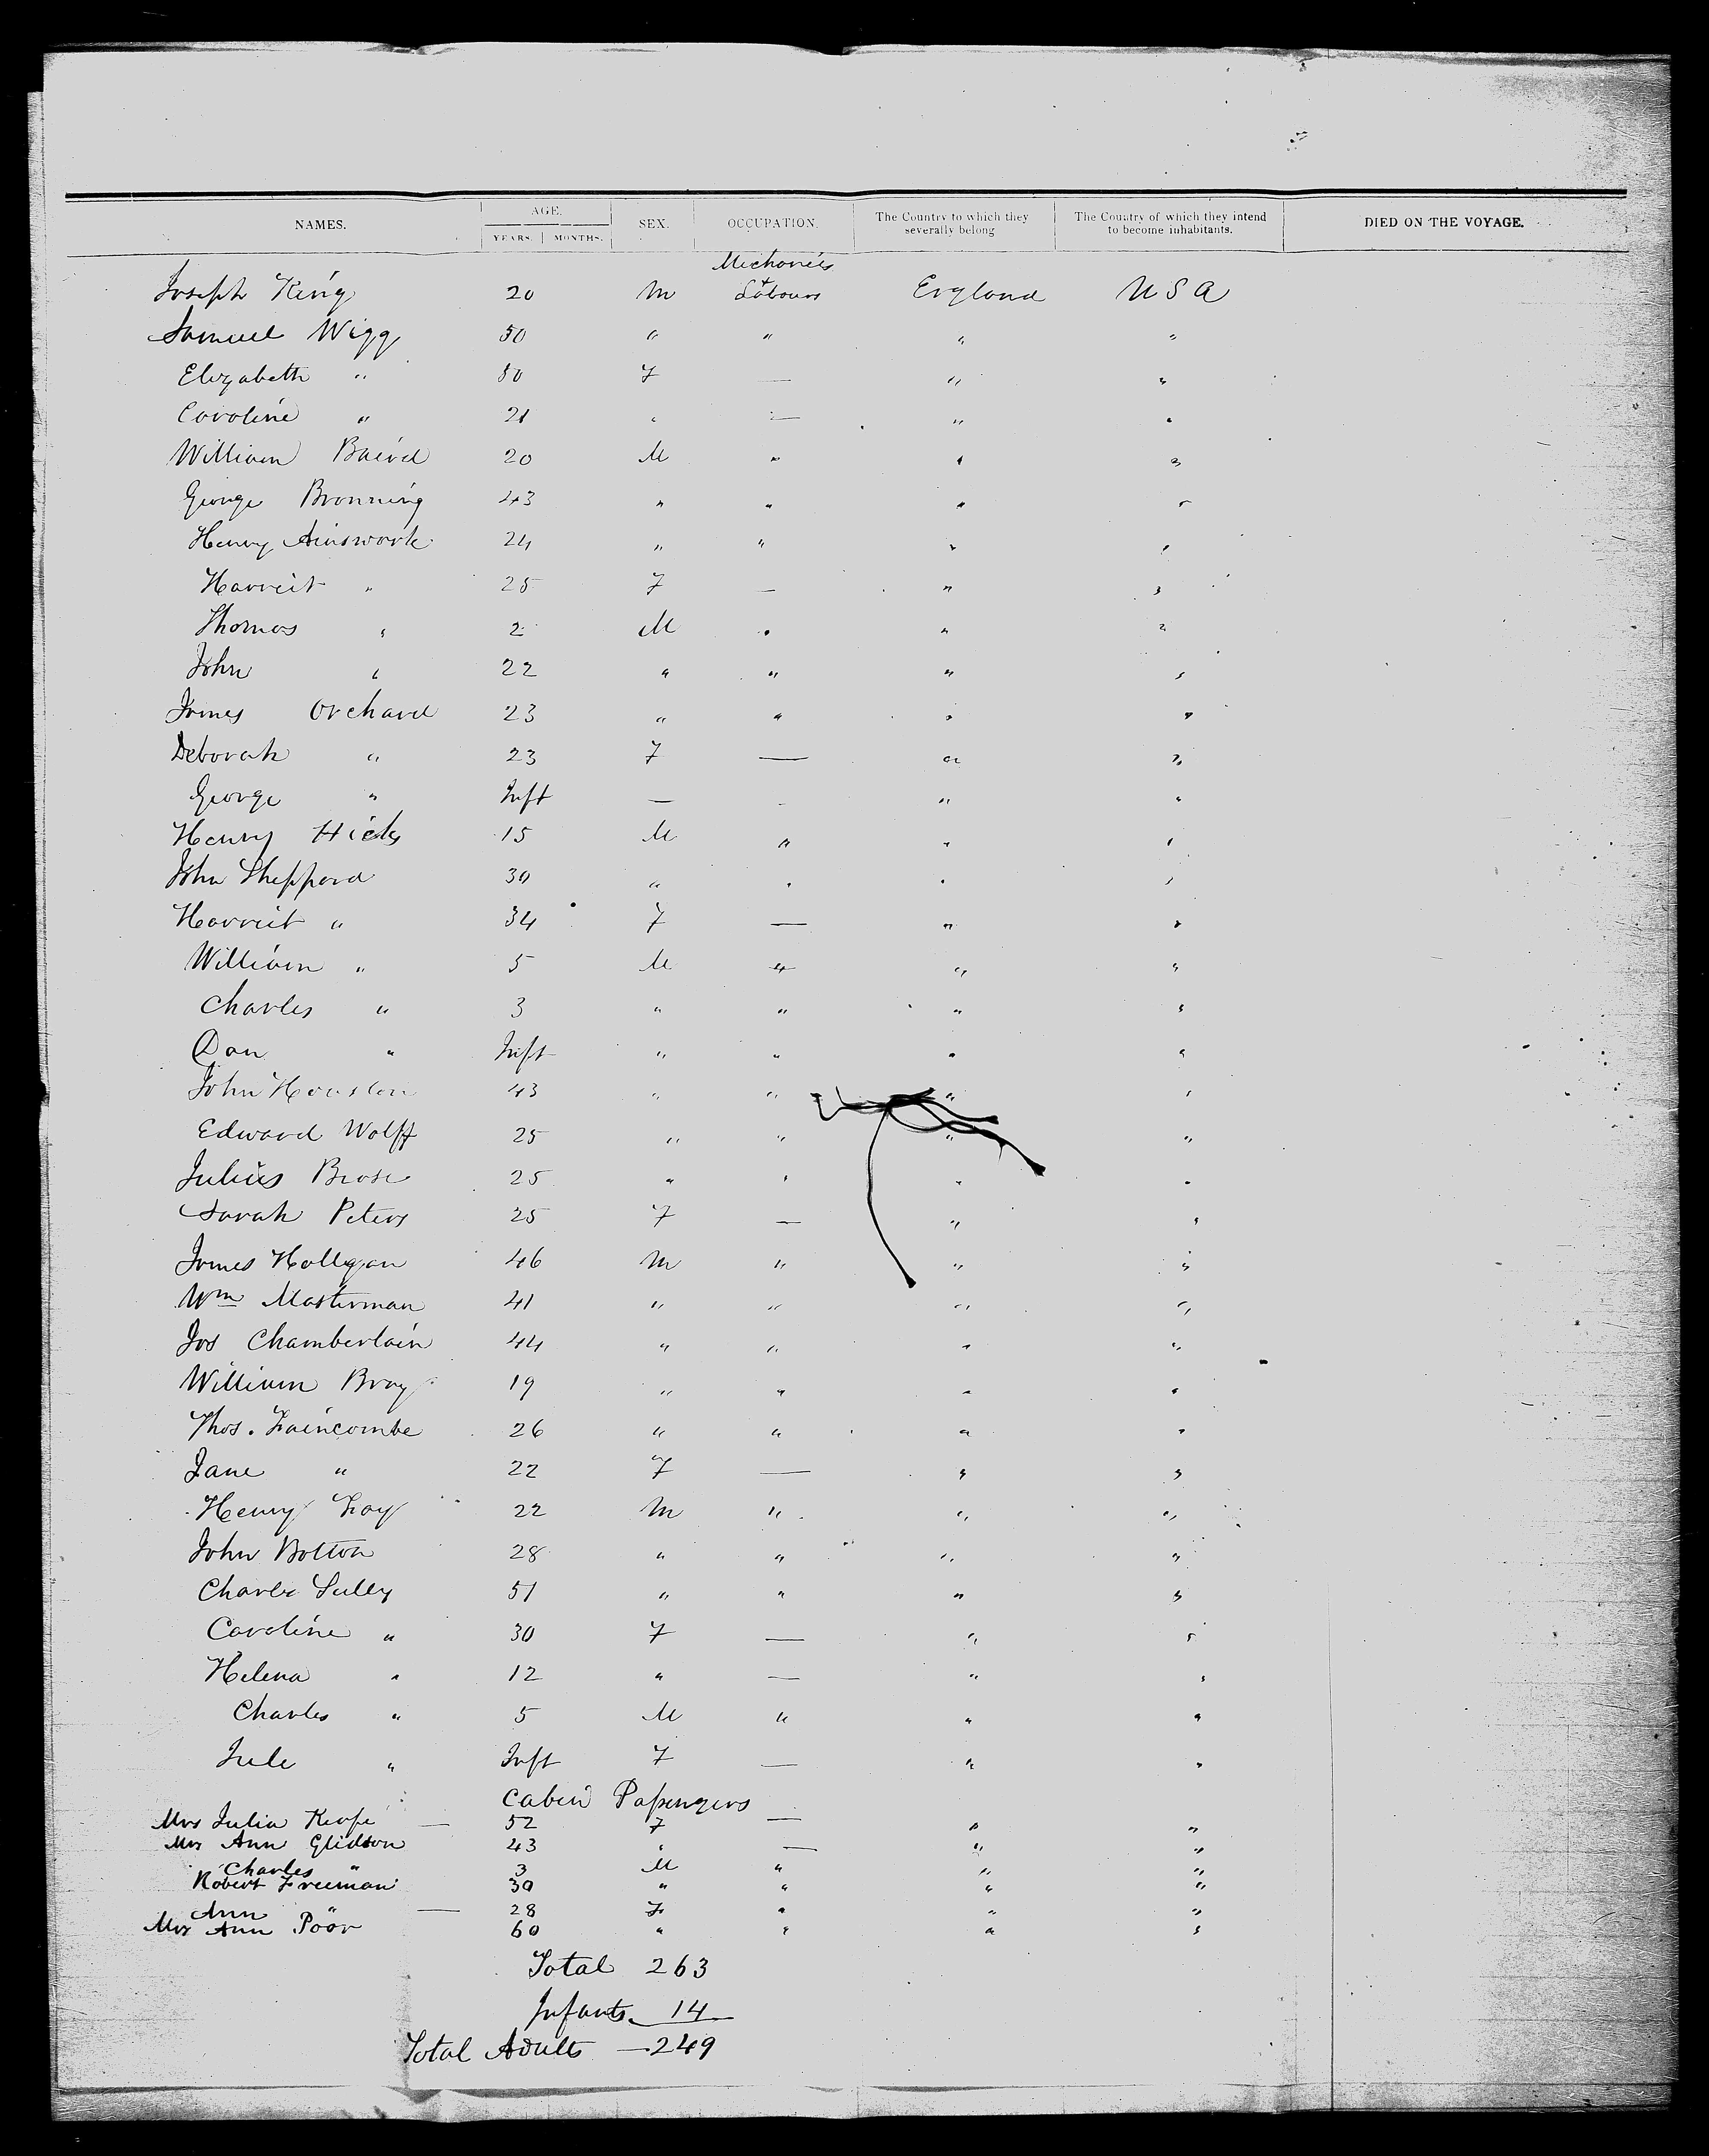 NAMES. AGE. SEX. OCCUPATION. The Country to which they severally belong The Country of which they intend to become inhabitants. DIED ON THE VOYAGE.
YEARS. MONTHS.
Mechanics
Joseph King 20 M + Labours England U S A
Samuel Wigg 50 " " " "
Elizabeth " 50 F — " "
Caroline " 21 " — " "
William Baird 20 M " " "
George Bronning 43 " " " "
Henry Ainswork 24 " " " "
Harriet " 25 F — " "
Thomas " 2 M " " "
John " 22 " " " "
James Orchard 23 " " " "
Deborah " 23 F — " "
George " Inft — - " "
Henry Hicks 15 M " " "
John Sheppard 30 " " " "
Harriet " 34 F — " "
William " 5 M " " "
Charles " 3 " " " "
Dan " Inft " " " "
John Houston 43 " " " "
Edward Wolff 25 " " " "
Julius Brose 25 " " " "
Sarah Peters 25 F — " "
James Hollgan 46 M " " "
Wm Masterman 41 " " " "
Jos Chamberlain 44 " " " "
William Bray 19 " " " "
Thos. Laincombe 26 " " " "
Jane " 22 F — " "
Henry Loy 22 M " " "
John Bolton 28 " " " "
Charles Sully 51 " " " "
Caroline " 30 F — " "
Helena " 12 " — " "
Charles " 5 M " " "
Jule " Inft F — " "
Cabin Passengers
Mrs Julia Keofe — 52 F — " "
Mrs Ann Glidson 43 " — " "
Charles " 3 M " " "
Robert Freeman 30 " " " "
Ann " — 28 F " " "
Mrs Ann Poor 60 " " " "
Total 263
Infants 14
Total Adults — 249